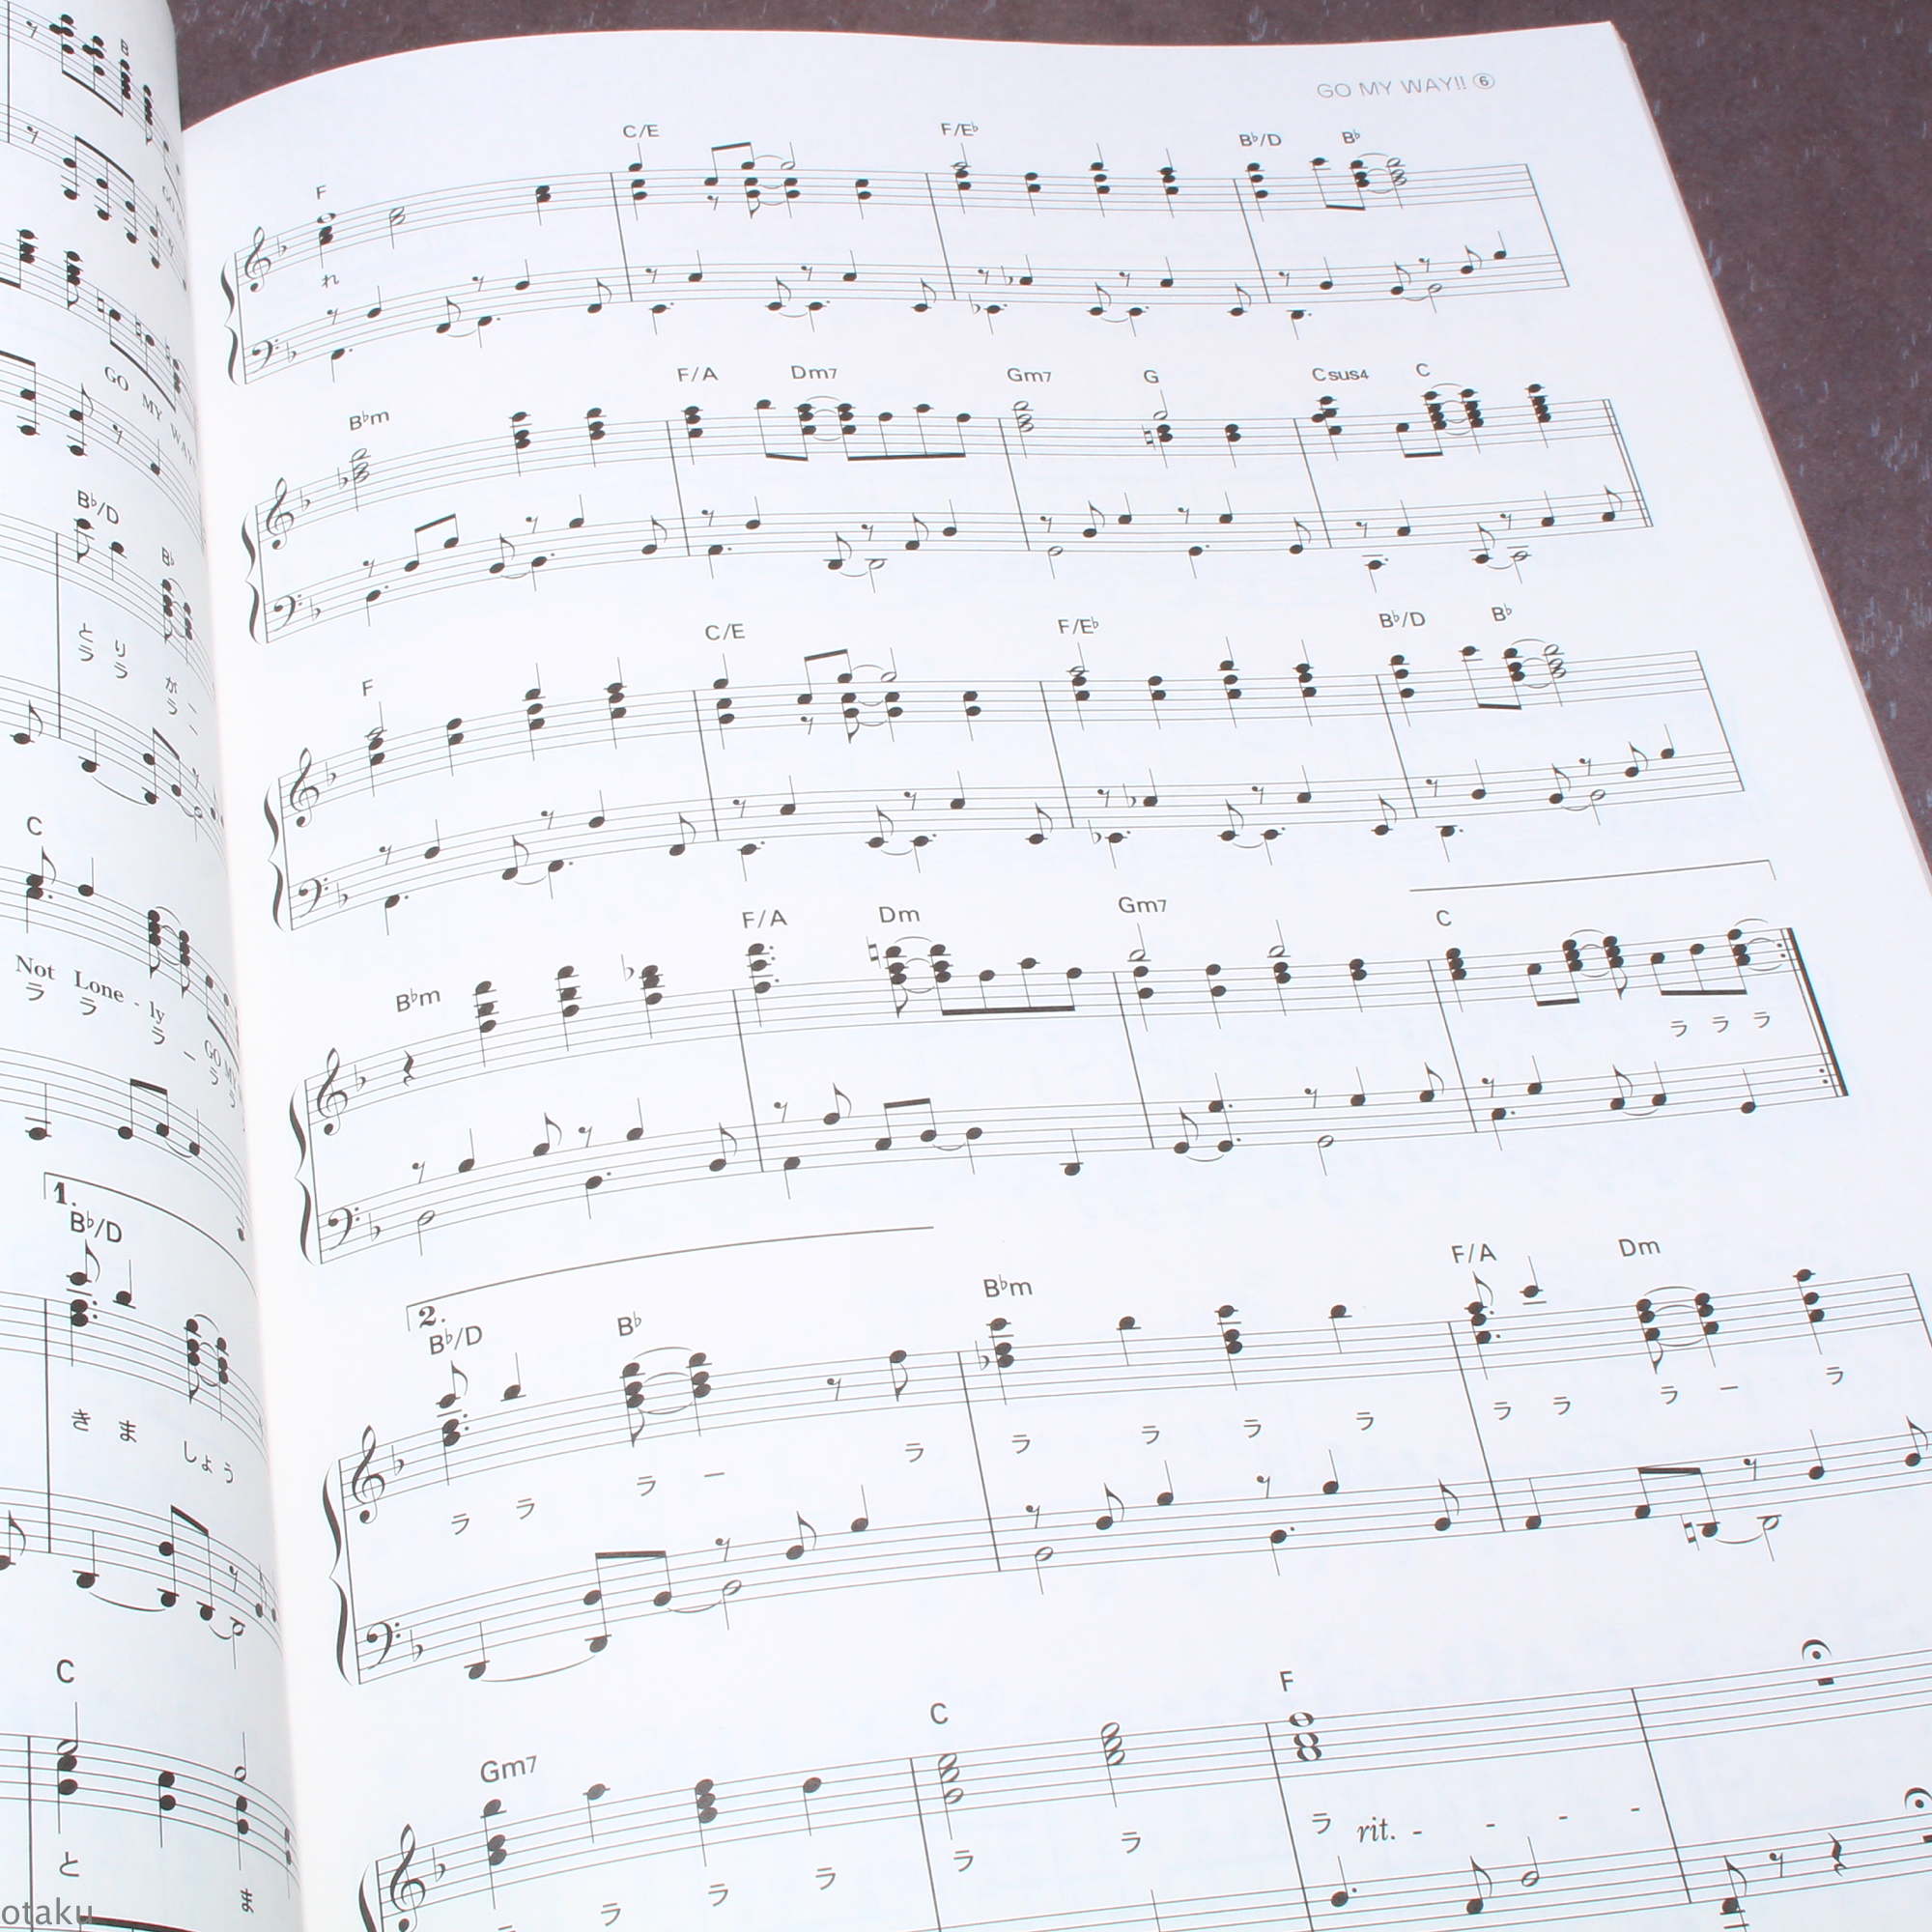 B
GO MY WAY!!
B♭/D
B♭
とりがー
ララ ラー
C
Not Lone - ly GO MY
ラ ラ ラ ー ラ ラ
1.
B♭/D
きま しょう
C
と ま
GO MY WAY!! ⑥
F C/E F/E♭ B♭/D B♭
れ
B♭m F/A Dm7 Gm7 G Csus4 C
F C/E F/E♭ B♭/D B♭
B♭m F/A Dm Gm7 C
ラ ラ ラ
2.
B♭/D B♭ B♭m F/A Dm
ラ ラ ラ ー ラ ラ ラ ラ ラ ラ ラ ラ ー ラ
Gm7 C F
ラ ラ ラ ラ ラ ラ ラ rit. - - - -
otaku